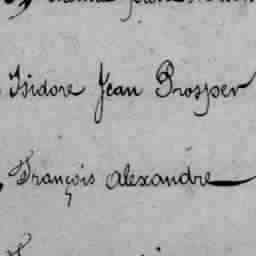 Isidore Jean Prosper
, François Alexandre